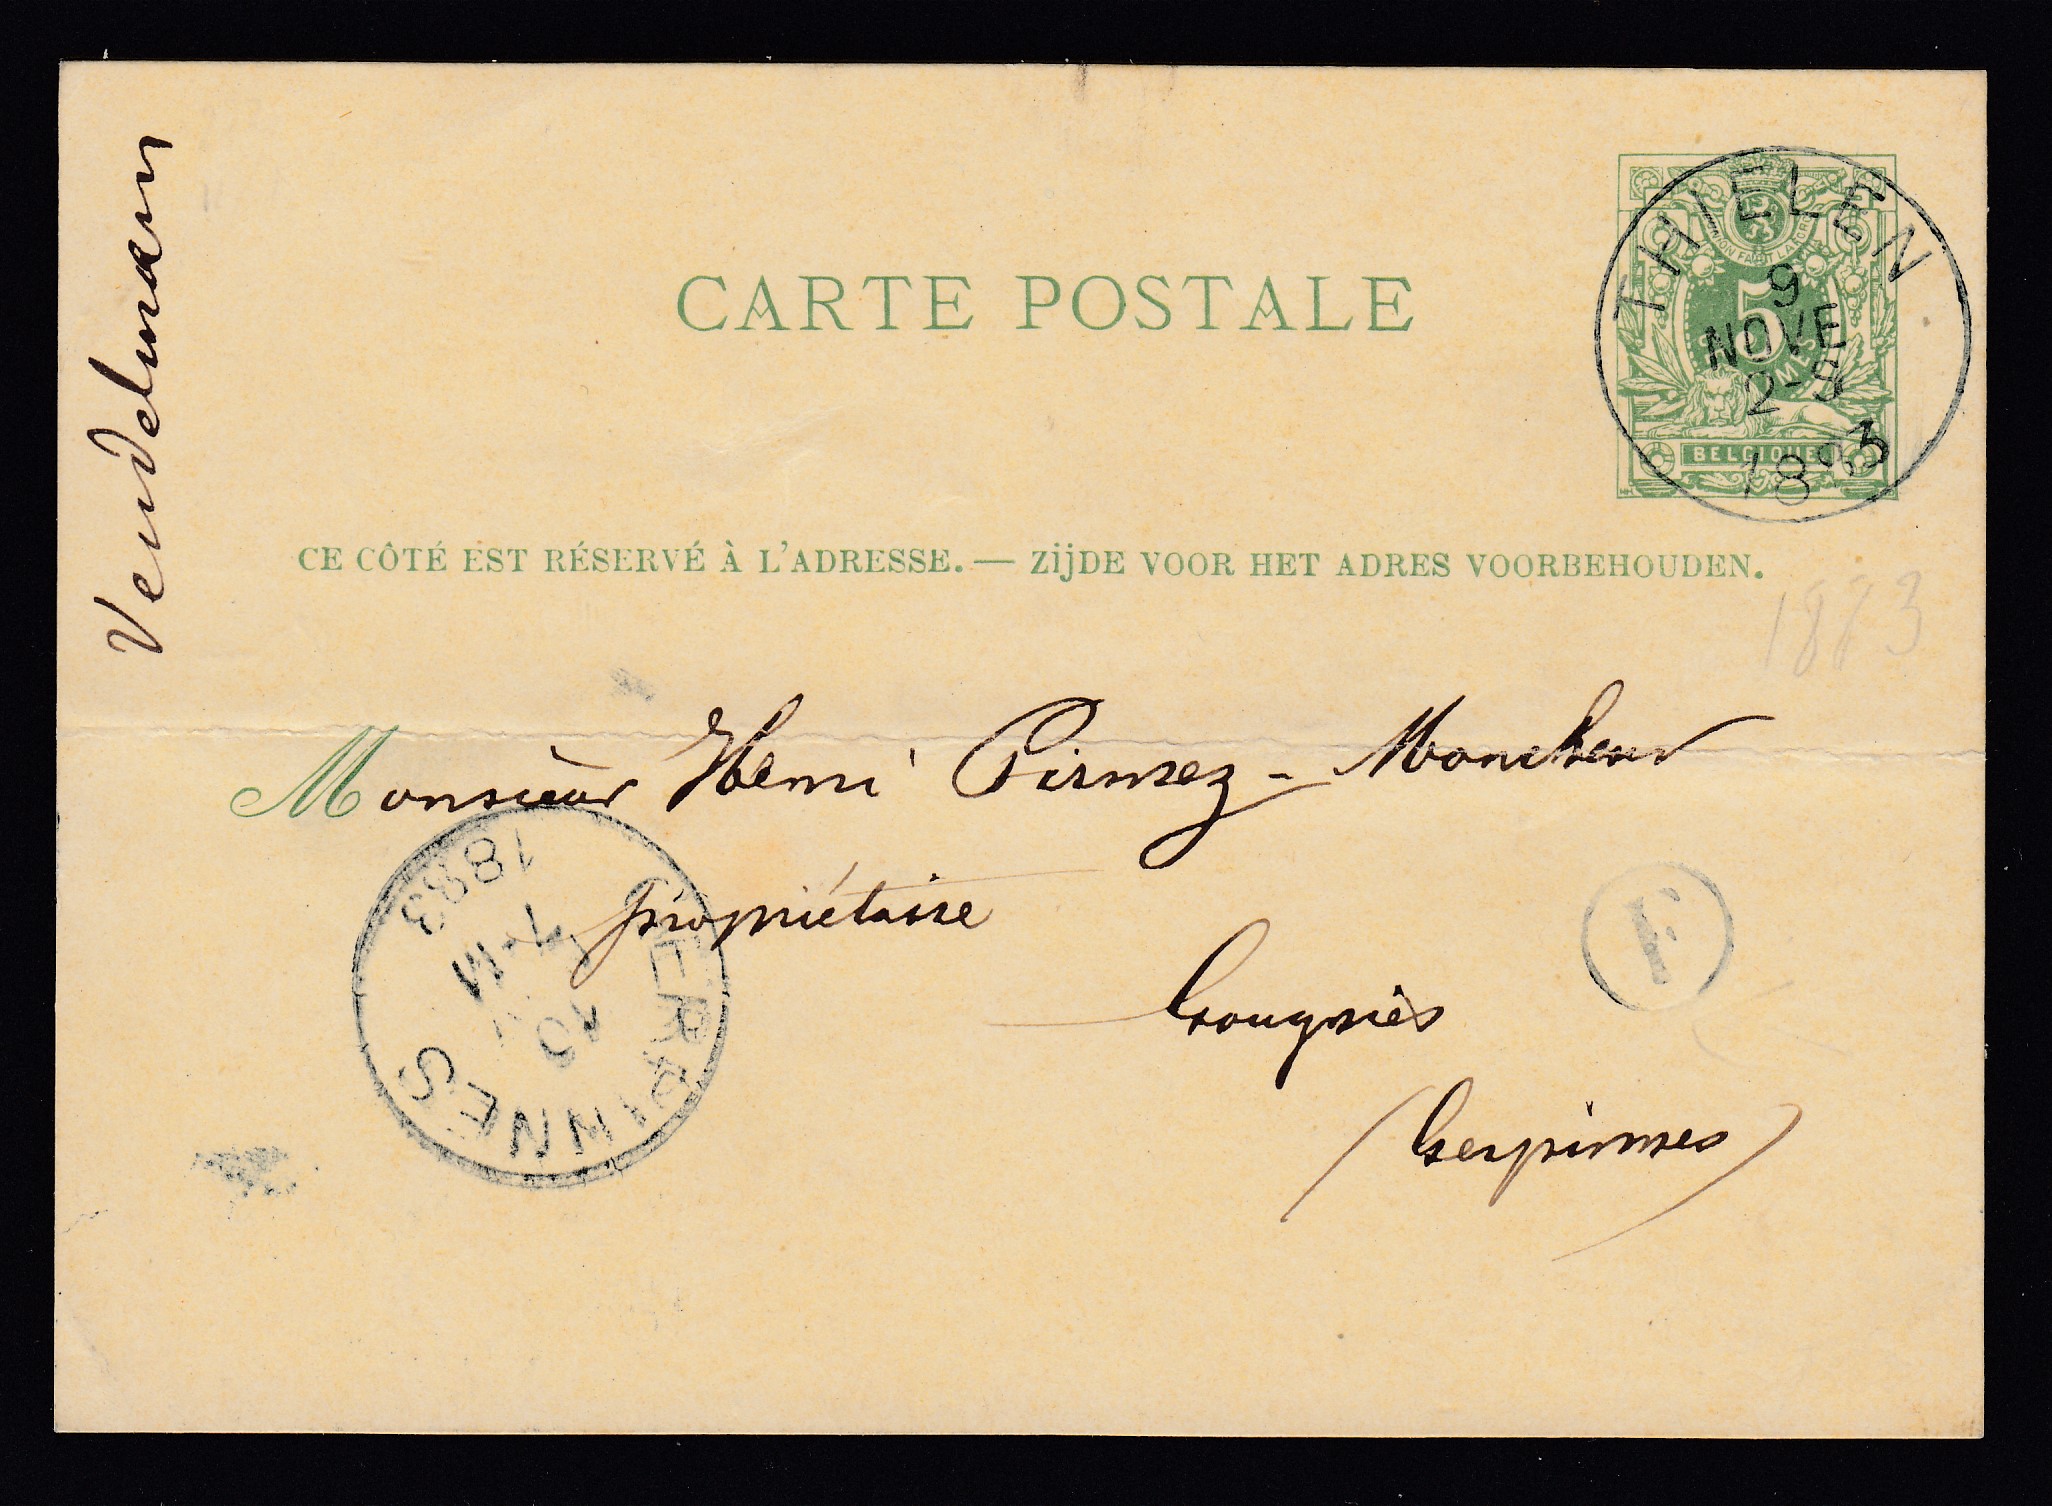 Vendelmann
CARTE POSTALE
L'UNION FAIT LA FORCE
5
BELGIQUE
THIELEN
9
NOVE
2-S
1893
CE CÔTÉ EST RÉSERVÉ À L'ADRESSE. — ZijDE VOOR HET ADRES VOORBEHOUDEN.
Monsieur Henri Pirmez-Moncheur
propriétaire
Gougnies
(Gerpinnes)
GERPINNES
10
1893